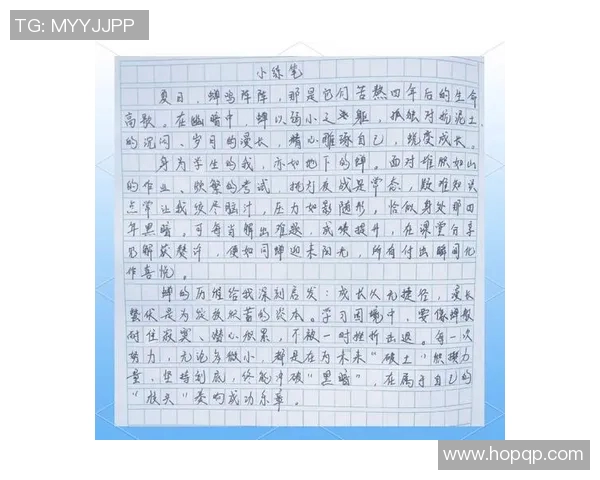 TG: MYYJJPP
小练笔
夏日，蝉鸣阵阵，那是它们苦熬四年后的生命
高歌。在幽暗中，蝉以弱小之躯，孤独对抗泥土
的沉闷、岁月的漫长，精心雕琢自己，蜕变成长。
身为学生的我，亦如地下的蝉。面对堆积如山
的作业、频繁的考试，挑灯夜战是常态，疑难知识
点常让我绞尽脑汁，压力如影随形，恰似身处那四
年黑暗。可每当解出难题，成绩提升，在课堂分享
见解获赞许，便如同蝉迎来阳光，所有付出瞬间化
作喜悦。
蝉的历程给我深刻启发：成长从无捷径，漫长
蛰伏是为绽放积蓄的资本。学习困境中，要像蝉般
耐住寂寞、潜心积累，不被一时挫折击退。每一次
努力，无论多微小，都是在为未来“破土”积攒力
量，坚持到底，终能冲破“黑暗”，在属于自己的
“枝头”奏响成功乐章。
www.hopqp.com